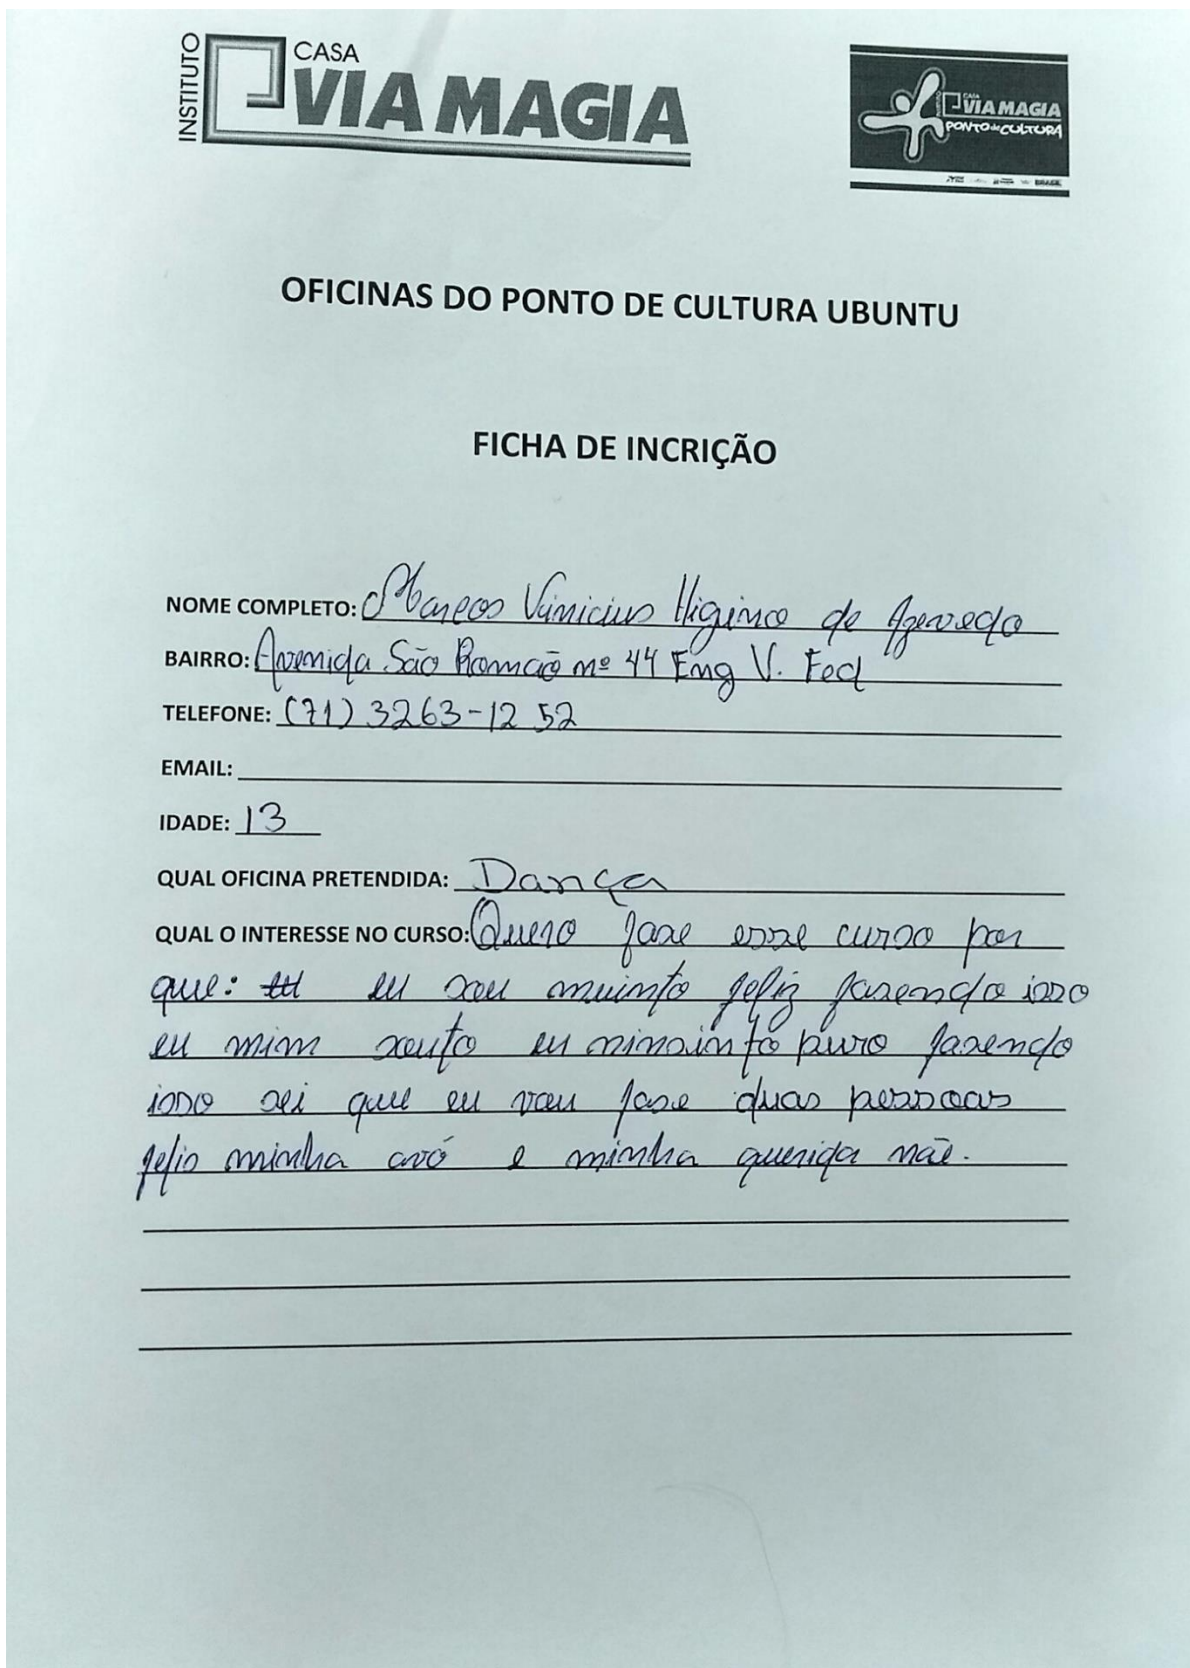 INSTITUTO
CASA
VIA MAGIA
CASA
VIA MAGIA
PONTO de CULTURA
BRASIL
OFICINAS DO PONTO DE CULTURA UBUNTU
FICHA DE INCRIÇÃO
NOME COMPLETO: Marcos Vinicius Higino de Azevedo
BAIRRO: Avenida São Romão nº 44 Eng V. Fed
TELEFONE: (71) 3263-1252
EMAIL:
IDADE: 13
QUAL OFICINA PRETENDIDA: Dança
QUAL O INTERESSE NO CURSO: Quero faze esse curso por
que: eu sou muinto feliz fazendo isso
eu mim eu puro fazendo
isso sei que eu vou faze duas pessoas
felis minha avó e minha querida mãe.